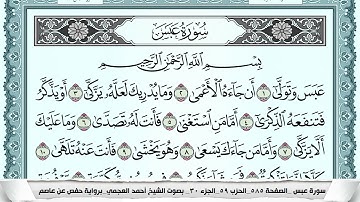 سُورَةُ عَبَسَ
بِسْمِ اللَّهِ الرَّحْمَٰنِ الرَّحِيمِ
عَبَسَ وَتَوَلَّىٰٓ ١ أَن جَآءَهُ ٱلْأَعْمَىٰ ٢ وَمَا يُدْرِيكَ لَعَلَّهُۥ يَزَّكَّىٰٓ ٣ أَوْ يَذَّكَّرُ
فَتَنفَعَهُ ٱلذِّكْرَىٰٓ ٤ أَمَّا مَنِ ٱسْتَغْنَىٰ ٥ فَأَنتَ لَهُۥ تَصَدَّىٰ ٦ وَمَا عَلَيْكَ
أَلَّا يَزَّكَّىٰ ٧ وَأَمَّا مَن جَآءَكَ يَسْعَىٰ ٨ وَهُوَ يَخْشَىٰ ٩ فَأَنتَ عَنْهُ تَلَهَّىٰ ١٠
سورة عبس _ الصفحة ٥٨٥ _ الحزب ٥٩ _ الجزء ٣٠ _ بصوت الشيخ أحمد العجمي _ برواية حفص عن عاصم